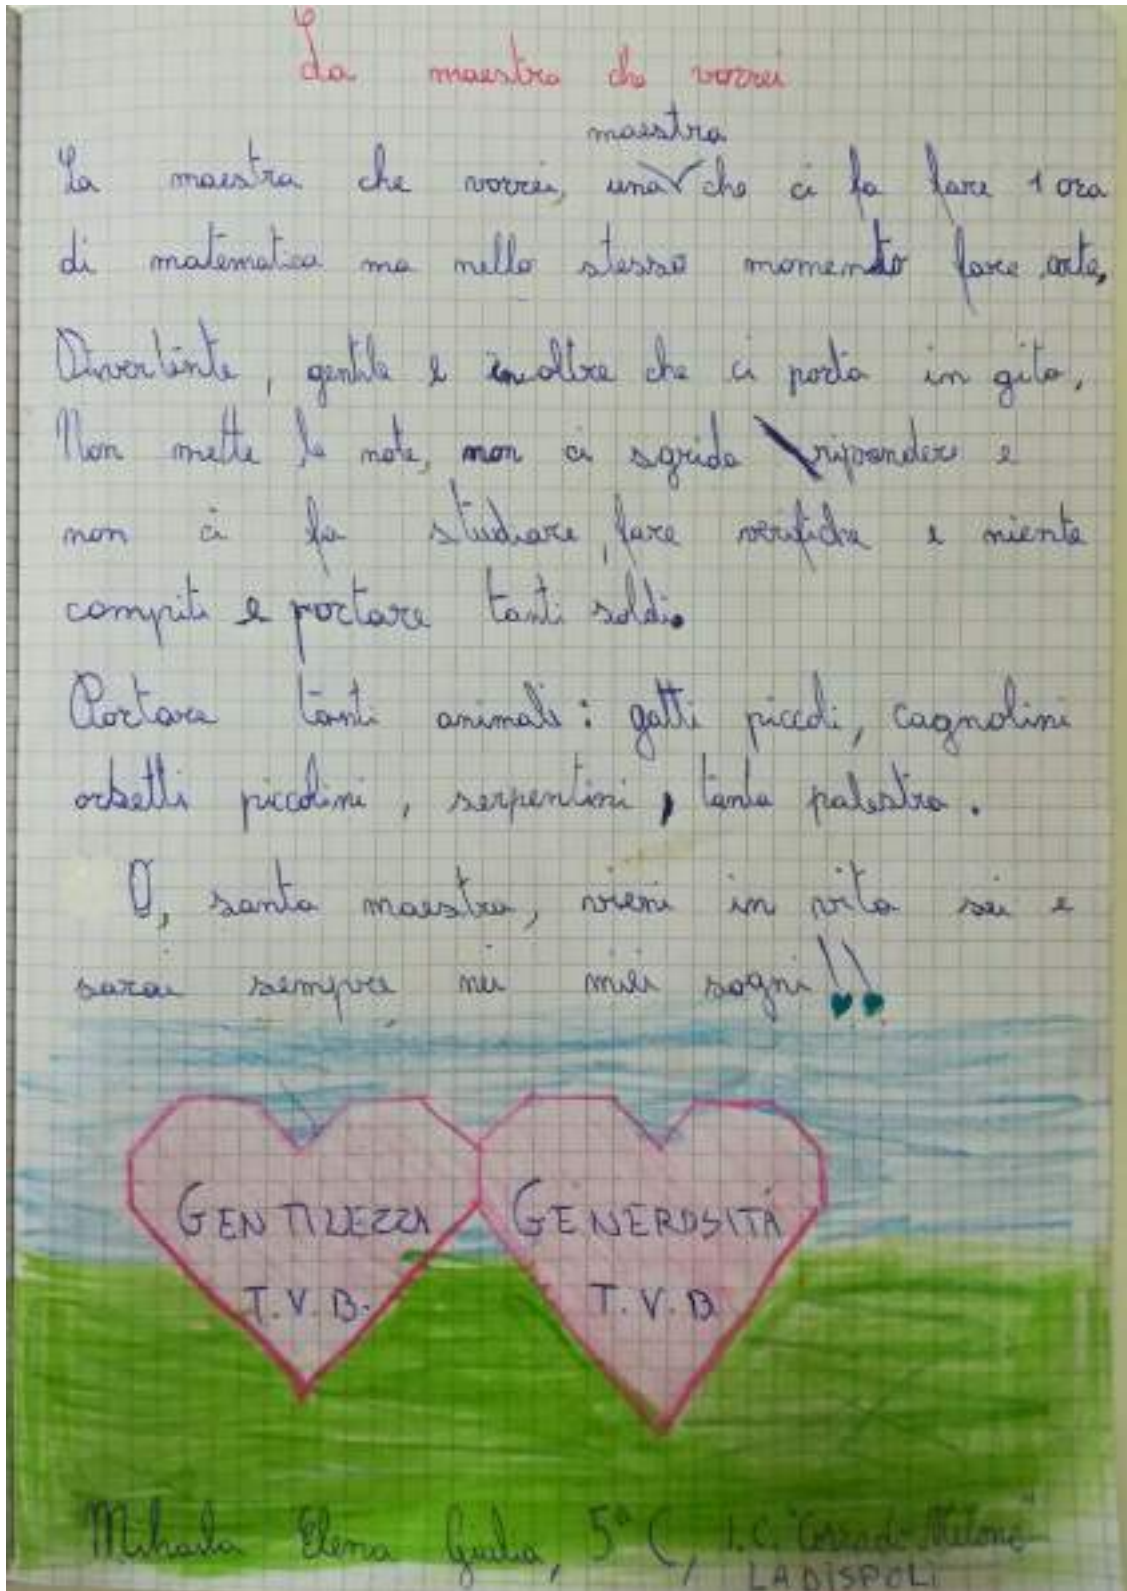 La maestra che vorrei
maestra
La maestra che vorrei, una che ci fa fare 1 ora
di matematica ma nello stesso momento fare arte,
Divertente, gentile e inoltre che ci porta in gita,
Non mette le note, non ci sgrida ripondere e
non ci fa studiare, fare verifiche e niente
compiti e portare tanti soldi.
Portare tanti animali: gatti piccoli, cagnolini
orsetti piccolini, serpentini, tanta palestra.
O, santa maestra, vieni in vita sei e
sarai sempre nei miei sogni!!
GENTILEZZA GENEROSITÁ
T.V.B. T.V.B
Mihaela Elena Giulia, 5ª C, I.C. "Corrado Melone"
LADISPOLI